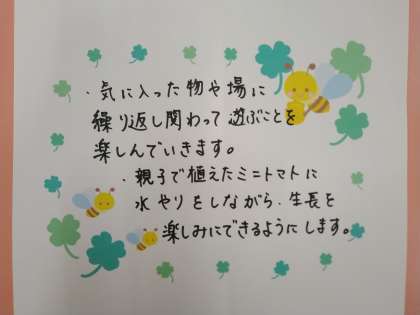 ・気に入った物や場に
繰り返し関わって遊ぶことを
楽しんでいきます。
・親子で植えたミニトマトに
水やりをしながら、生長を
楽しみにできるようにします。